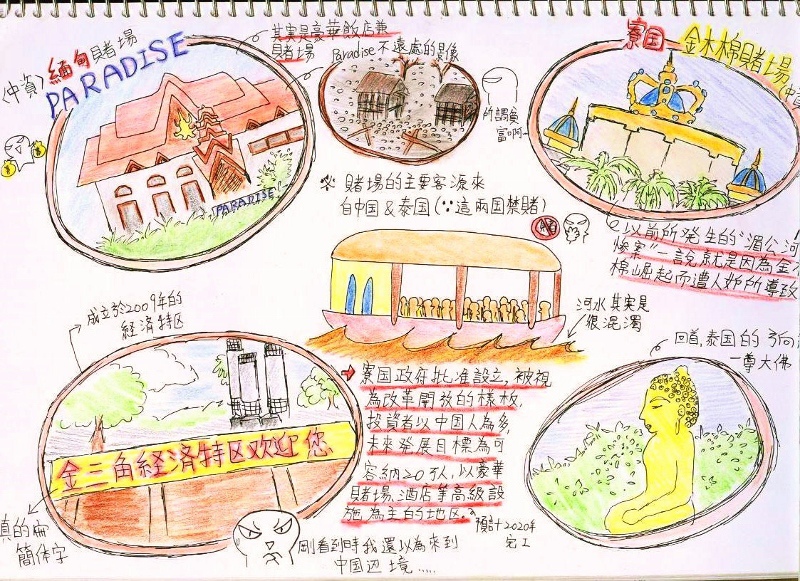 緬甸賭場
〈中資〉
PARADISE
其實是豪華飯店兼
賭場
Paradise不遠處的景像
所謂貧
富啊~
寮国 金木棉賭場
PARADISE
※ 賭場的主要客源來
自中国&泰国(∵這兩国禁賭)
以前所発生的"湄公河
慘案"一說就是因為金木
棉崛起而遭人妒所導致
成立於2009年的
経済特区
河水其實是
很混濁
回首,泰国的
一尊大佛
金三角経済特区欢迎您
➡ 寮国政府批准設立,被視
為改革開放的樣板,
投資者以中国人為多,
未來發展目標為可
容納20万人,以豪華
賭場、酒店等高級設
施為主的地区。
預計2020年
完工
真的痛
簡体字
剛看到時我還以為來到
中国辺境.....